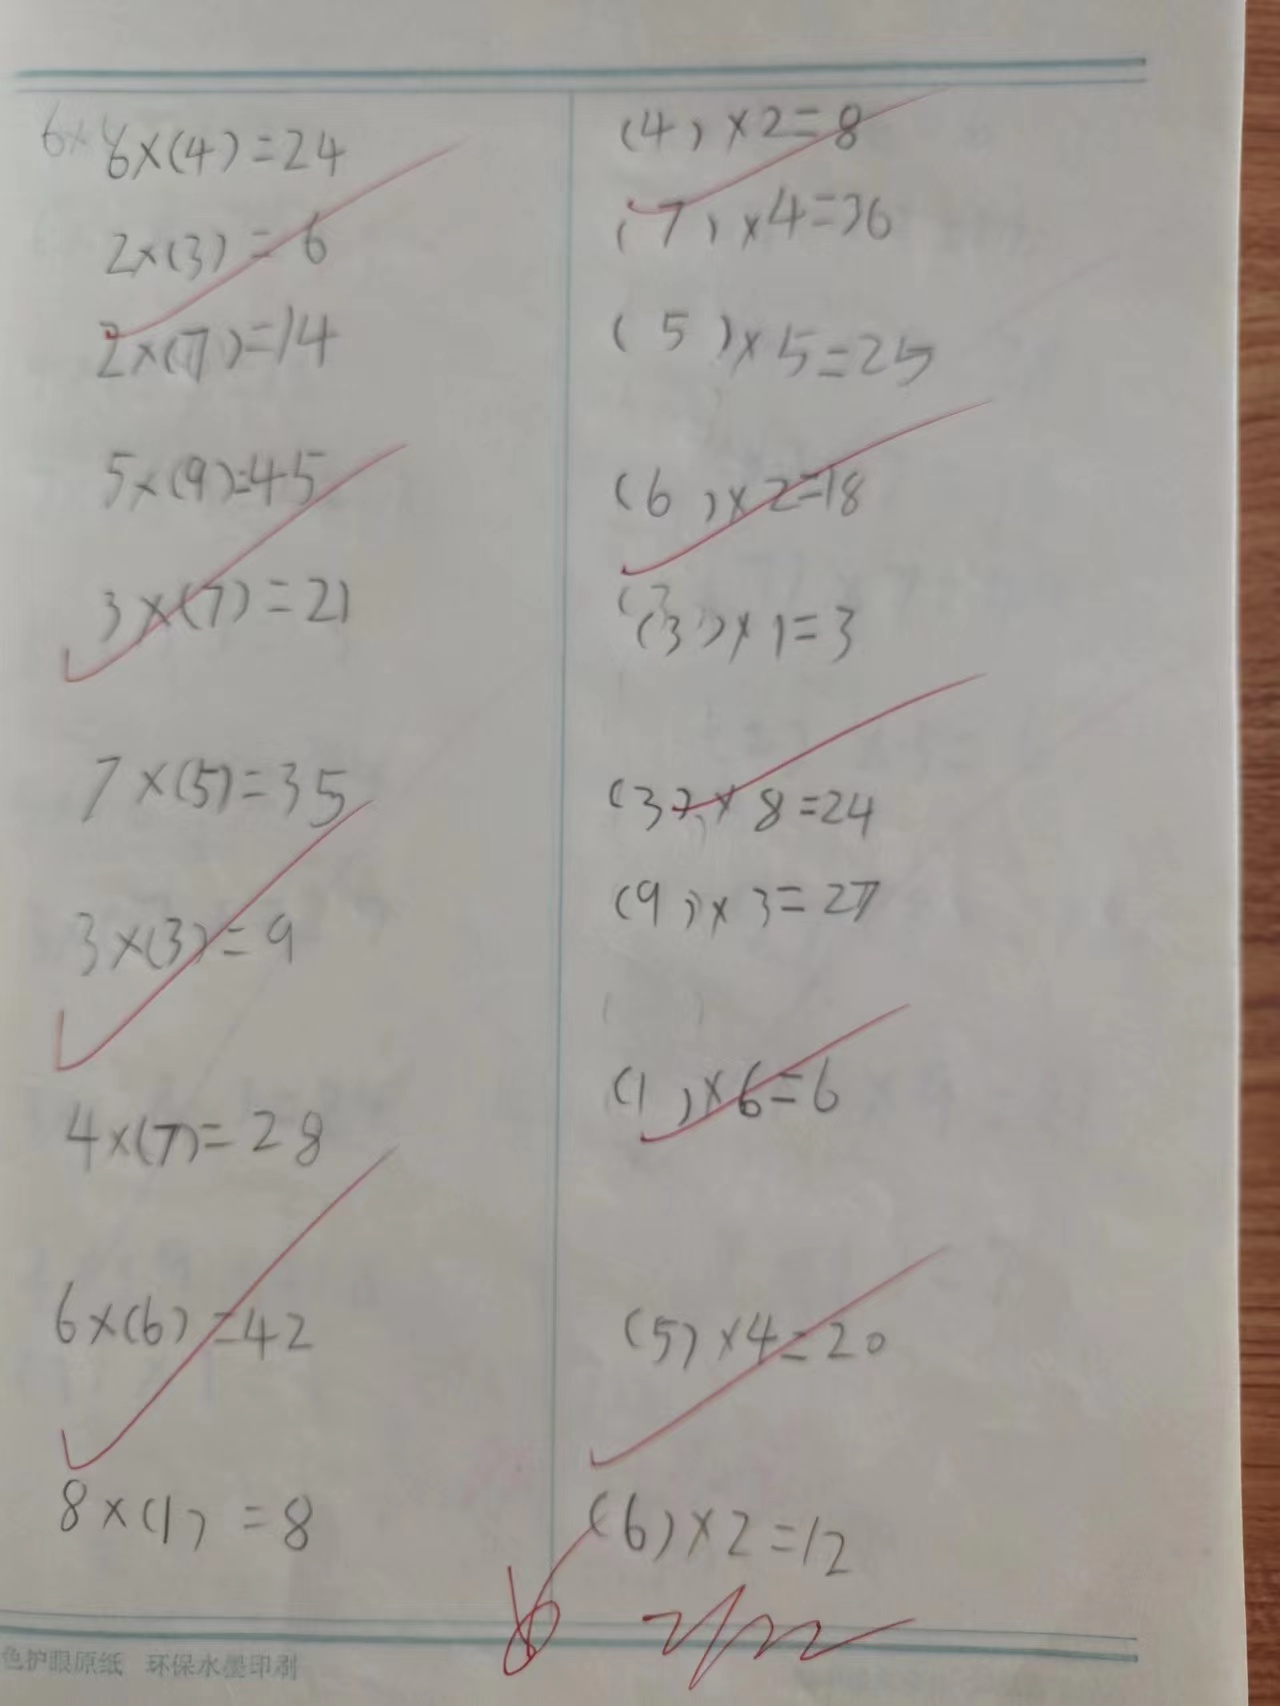 6×
6×(4)=24
2×(3)=6
2×(7)=14
5×(9)=45
3×(7)=21
7×(5)=35
3×(3)=9
4×(7)=28
6×(6)=42
8×(1)=8
(4)×2=8
(7)×4=36
(5)×5=25
(6)×2=18
(3)×1=3
(3)×8=24
(9)×3=27
(1)×6=6
(5)×4=20
(6)×2=12
色护眼原纸 环保水墨印刷